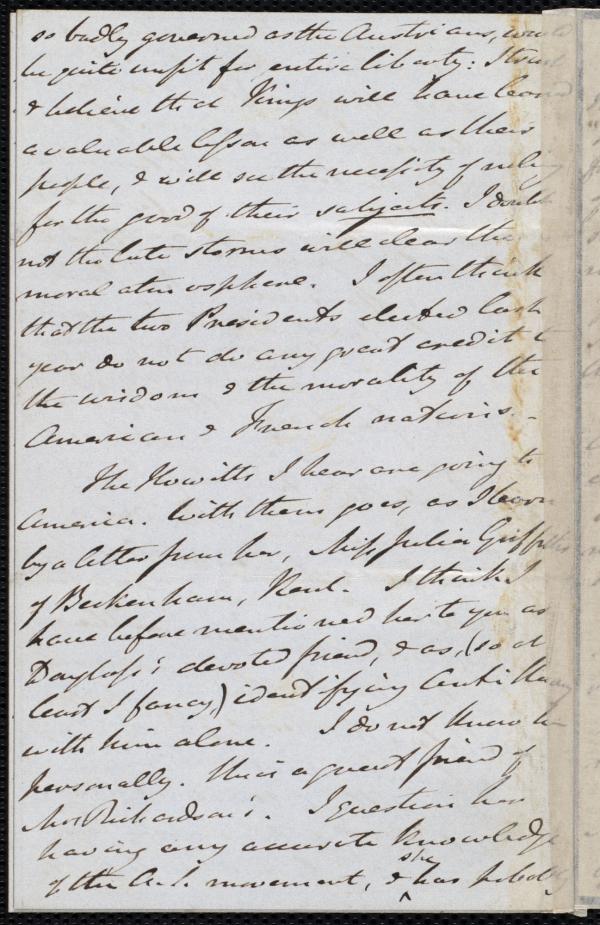 so badly governed as the Austrians, would
be quite unfit for entire liberty: I trust
& believe that Kings will have learnd
a valuable lesson as well as their
people, & will see the necessity of ruling
for the good of their subjects. I doubt
not the late storms will clear the
moral atmosphere. I often think
that the two Presidents elected last
year do not do any great credit to
the wisdom & the morality of the
American & French nations. -
The Howitts I hear are going to
America. With them goes, as I learn
by a letter from her, Miss Julia Griffiths
of Beckenham, Kent. I think I
have before mentioned her to you as
Douglass's devoted friend, & as, (so at
least I fancy,) identifying Anti Slavery
with him alone. I do not know her
personally. She is a great friend of
Mrs Richardson's. I question her
having any accurate knowledge
of the A. S. movement, & she has probably